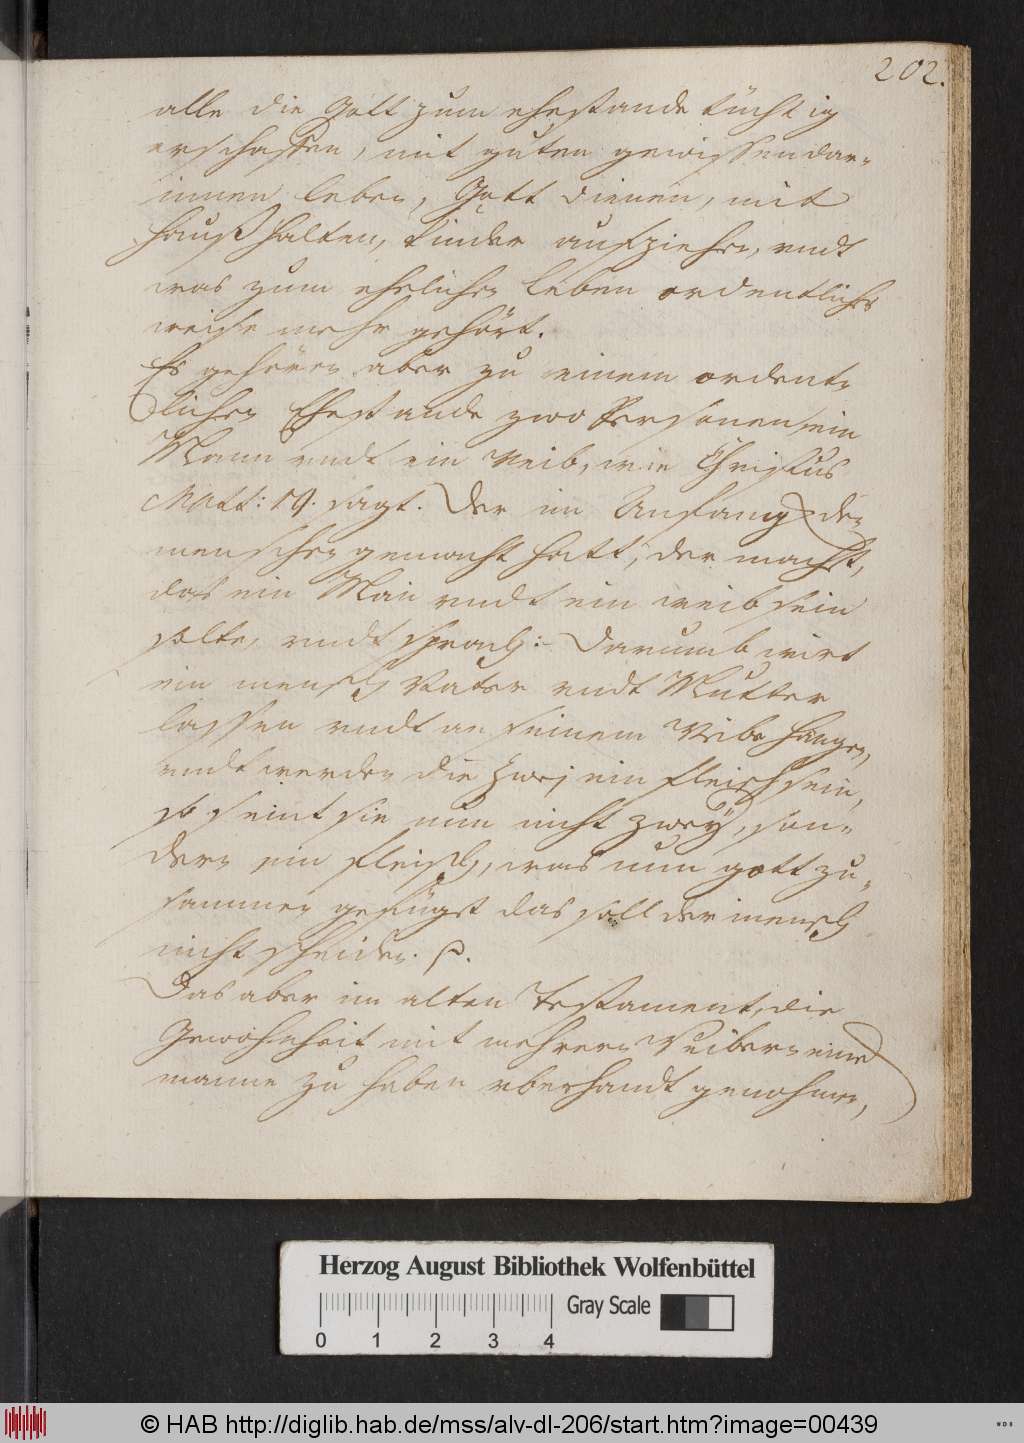 202.
alle die Gott zum ehestande tüchtig
erschaffen, mit guten gewissen dar-
innen leben, Gott dienen, mit
hauß halten, kinder aufziehen, undt
was zum ehrlichen leben ordentlicher
weise mehr gehört.
Es gehören aber zu einem ordent-
lichen Ehestande zwo Personen, ein
Mann undt ein Weib, wie Christus
Matt: 19. sagt. Der im Anfang den
menschen gemacht hatt, der macht,
das ein Man undt ein weib sein
solte, undt sprach: Darumb wirt
ein mensch Vater undt Mutter
lassen undt an seinem Weibe hangen,
undt werden die zwej ein fleisch sein,
so seint sie nun nicht zweÿ, son-
dern ein fleisch, was nun gott zu-
sammen gefüget das soll der mensch
nicht scheiden.
Das aber im alten Testament, die
Gewohnheit mit mehrern Weibern eine
manne zu haben uberhandt genohmen,
Herzog August Bibliothek Wolfenbüttel
Gray Scale
0 1 2 3 4
© HAB http://diglib.hab.de/mss/alv-dl-206/start.htm?image=00439